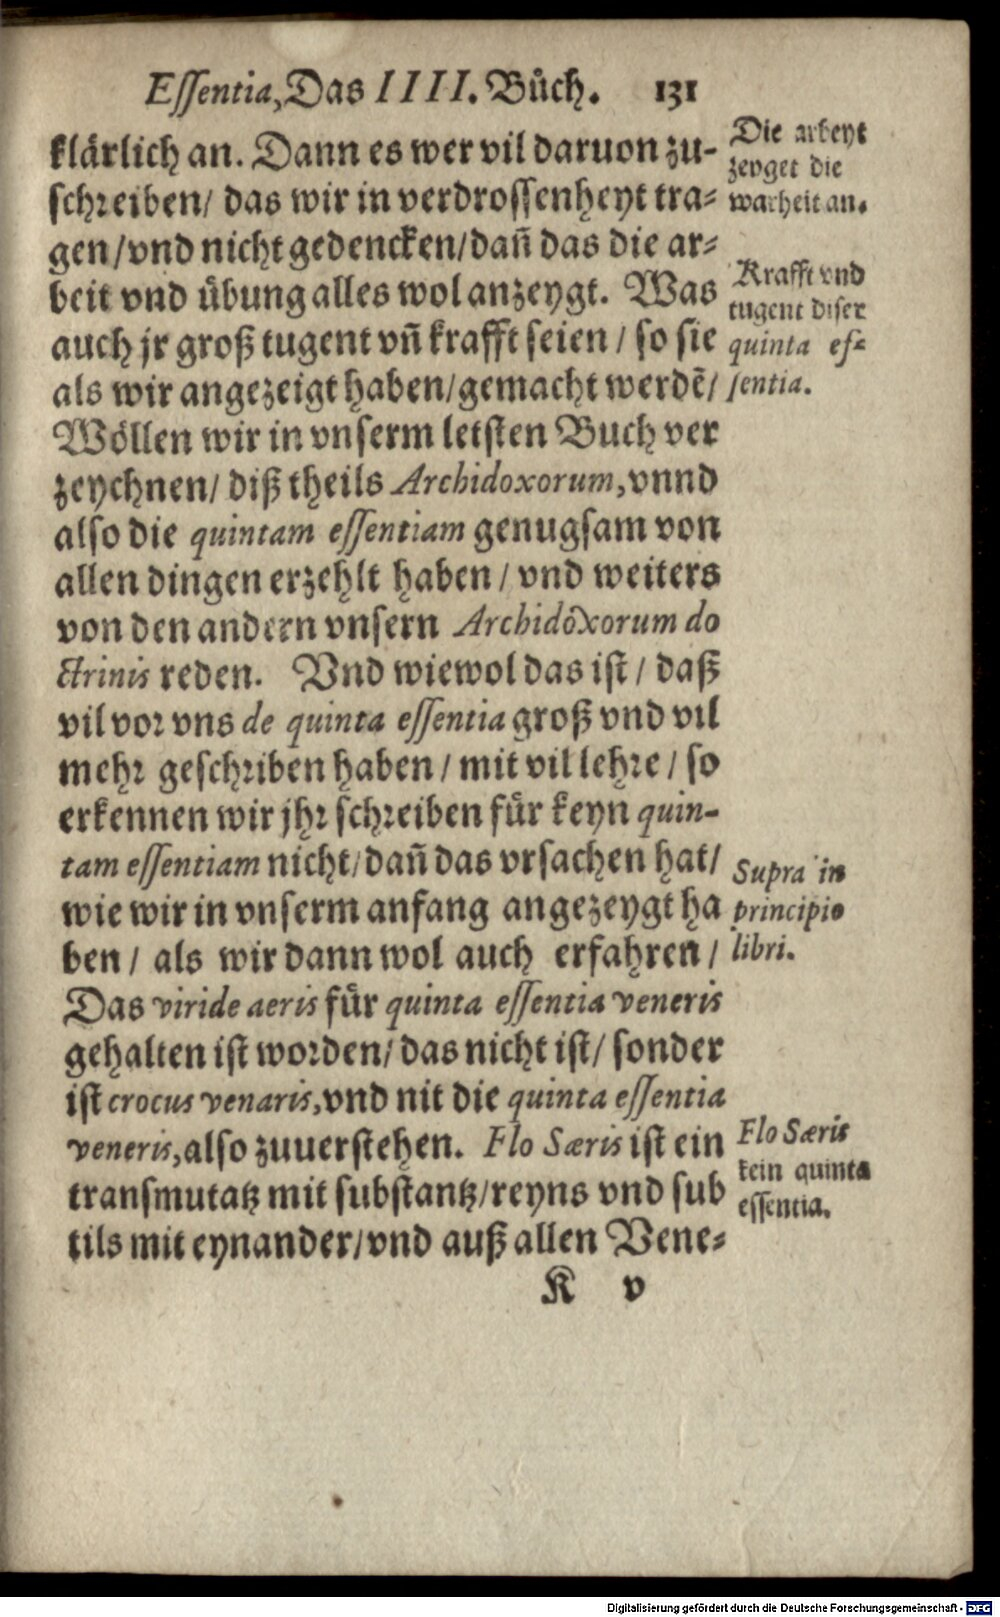 Essentia, Das IIII. Bůch. 131
klärlich an. Dann es wer vil daruon zu-
schreiben/ das wir in verdrossenheyt tra-
gen/vnd nicht gedencken/dañ das die ar-
beit vnd übung alles wol anzeygt. Was
auch jr groß tugent vñ krafft seien / so sie
als wir angezeigt haben/gemacht werdẽ/
Wöllen wir in vnserm letsten Buch ver
zeychnen/ diß theils Archidoxorum, vnnd
also die quintam essentiam genugsam von
allen dingen erzehlt haben / vnd weiters
von den andern vnsern Archidoxorum do
ctrinis reden. Vnd wiewol das ist / daß
vil vor vns de quinta essentia groß vnd vil
mehr geschriben haben / mit vil lehre / so
erkennen wir jhr schreiben für keyn quin-
tam essentiam nicht/dañ das vrsachen hat/
wie wir in vnserm anfang angezeygt ha
ben / als wir dann wol auch erfahren /
Das viride aeris für quinta essentia veneris
gehalten ist worden/das nicht ist/ sonder
ist crocus venaris, vnd nit die quinta essentia
veneris, also zuuerstehen. Flo Særis ist ein
transmutatz mit substantz/reyns vnd sub
tils mit eynander/vnd auß allen Vene-
K v
Die arbeyt
zeyget die
warheit an.
Krafft vnd
tugent diser
quinta es-
sentia.
Supra in
principio
libri.
Flo Særis
kein quinta
essentia.
Digitalisierung gefördert durch die Deutsche Forschungsgemeinschaft - DFG